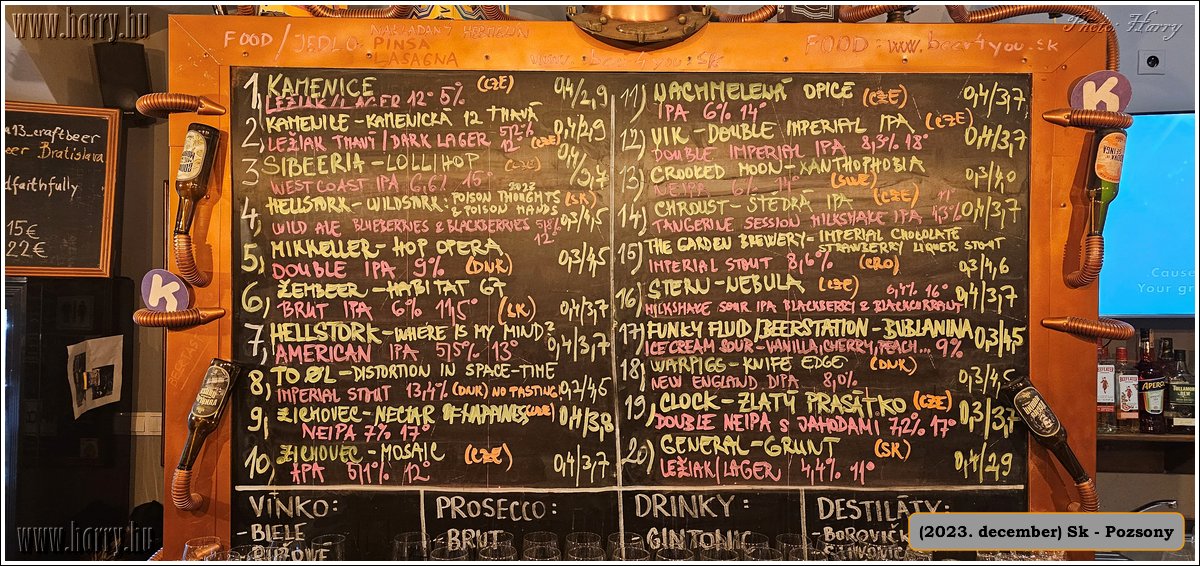 www.harry.hu
Photo: Harry
FOOD/JEDLO
PINSA
LASAGNA
www.beer4you.sk
FOOD: www.beer4you.sk
a13_craftbeer
eer Bratislava
dfaithfully
15€
22€
1, KAMENICE (CZE) 0,4/2,9
LEŽIAK/LAGER 12° 5%
2, KAMENICE-KAMENICKÁ 12 TMAVÁ
LEŽIAK TMAVÝ/DARK LAGER 12° (CZE) 0,4/2,9
3, SIBEERIA-LOLLIHOP (CZE) 0,4/3,7
WEST COAST IPA 6,6% 15°
4, HELLSTORK-WILDSTORK: POISON THOUGHTS & POISON HANDS 2022 (SK) 0,3/4,5
WILD ALE BLUEBERRIES & BLACKBERRIES 12°
5, MIKKELLER-HOP OPERA 0,3/4,5
DOUBLE IPA 9% (DNK)
6, ŽEMBEER-HABITAT GT
BRUT IPA 6% 11,5° (SK) 0,4/3,7
7, HELLSTORK-WHERE IS MY MIND? 0,4/3,7
AMERICAN IPA 5,5% 13°
8, TO ØL-DISTORTION IN SPACE-TIME
IMPERIAL STOUT 13,4% (DNK) NO TASTING 0,2/4,5
9, ZICHOVEC-NECTAR OF HAPPINESS (CZE) 0,4/3,8
NEIPA 7% 17°
10, ZICHOVEC-MOSAIC (CZE) 0,4/3,7
APA 5,1% 12°
11) NACHMELENÁ OPICE (CZE) 0,4/3,7
IPA 6% 14°
12) VIK-DOUBLE IMPERIAL IPA (CZE) 0,4/3,7
DOUBLE IMPERIAL IPA 8,3% 18°
13) CROOKED MOON-XANTHOPHOBIA 0,3/4,0
NEIPA 6% 14° (SWE)
14) CHROUST-ŠTEDRÁ IPA (CZE) 11° 0,4/3,7
TANGERINE SESSION MILKSHAKE IPA 4,3%
15) THE GARDEN BREWERY-IMPERIAL CHOCOLATE STRAWBERRY LIQUER STOUT
IMPERIAL STOUT 8,6% (CRO) 0,3/4,6
16) STERN-NEBULA (CZE) 6,4% 16° 0,4/3,7
MILKSHAKE SOUR IPA BLACKBERRY & BLACKCURRANT
17) FUNKY FLUID/BEERSTATION-BUBLANINA 0,3/4,5
ICE CREAM SOUR-VANILLA, CHERRY, PEACH... 9%
18) WARPIGS-KNIFE EDGE (DNK)
NEW ENGLAND DIPA 8,0% 0,3/4,5
19) CLOCK-ZLATÝ PRASÁTKO (CZE) 0,3/3,7
DOUBLE NEIPA S JAHODAMI 7,2% 17°
20) GENERAL-GRUNT (SK)
LEŽIAK/LAGER 4,4% 11° 0,4/2,9
VÍNKO:
-BIELE
-RUŽOVÉ
PROSECCO:
-BRUT
DRINKY:
-GINTONIC
DESTILÁTY:
-BOROVIČKA
-SLIVOVICA
K
K
Cause
Your gr
www.harry.hu
www.harry.hu
(2023. december) Sk - Pozsony